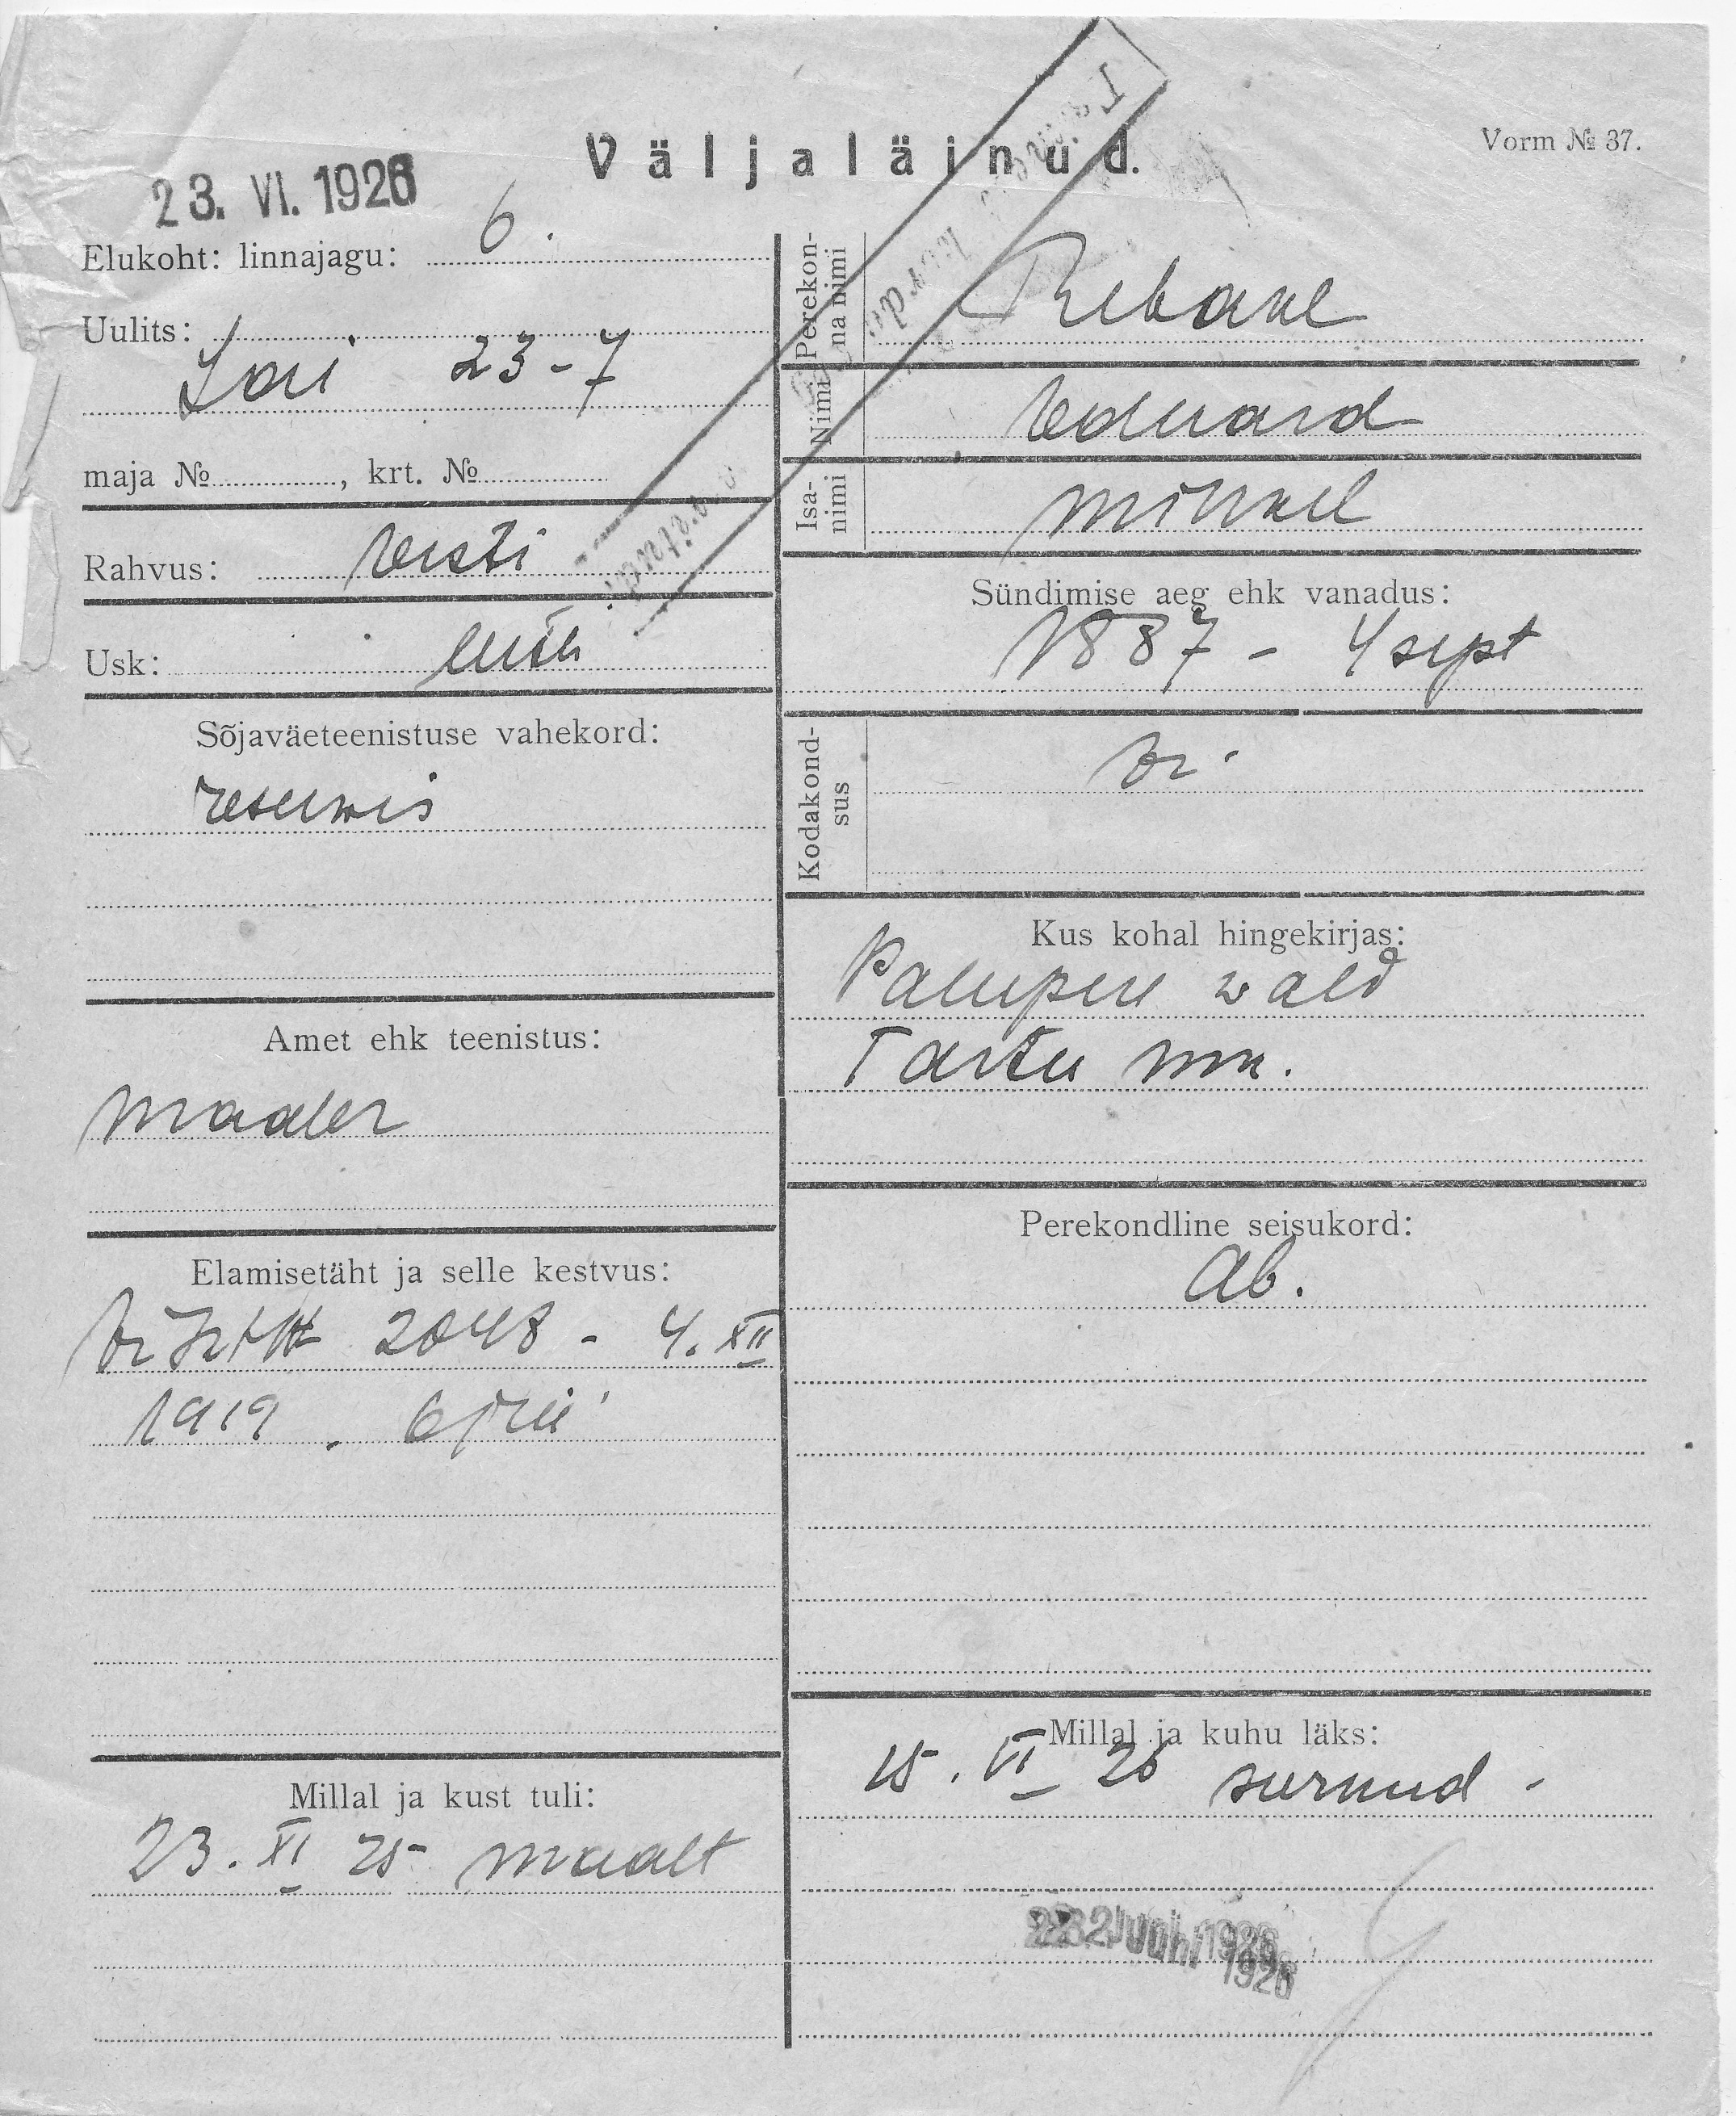 Väljaläinud.
Vorm № 37.
23. VI. 1926
Elukoht: linnajagu: 6.
Uulits:
Lai 23-7
maja № , krt. №
Rahvus: Eesti
Usk: luth
Sõjaväeteenistuse vahekord:
reserwis
Amet ehk teenistus:
maaler
Elamisetäht ja selle kestvus:
2048 - 4. XII
1919.
Millal ja kust tuli:
23. XI 25 maalt
Perekonna nimi Rebane
Nimi Eduard
Isanimi Mihkel
Sündimise aeg ehk vanadus:
1887 - 4 sept
Kodakondsus
Kus kohal hingekirjas:
Palupere wald
Tartu mm.
Perekondline seisukord:
Ab.
Millal ja kuhu läks:
15. VI 26 surnud.
Juuni 1926